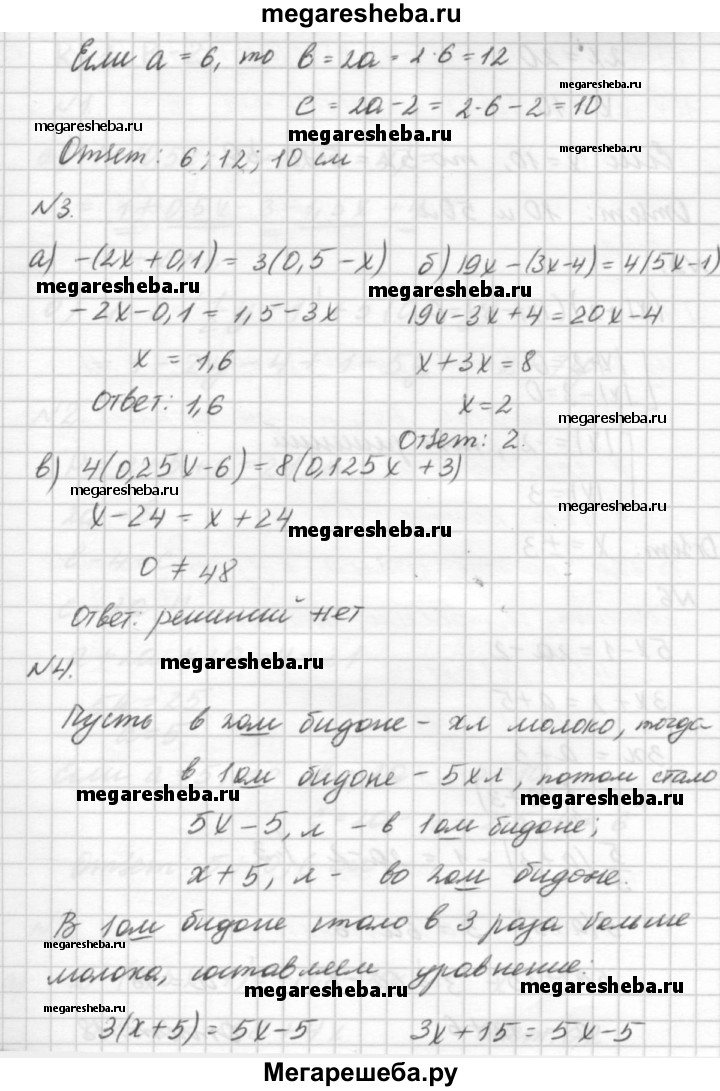 megaresheba.ru
Если a = 6, то b = 2a = 2·6 = 12
megaresheba.ru
c = 2a-2 = 2·6-2 = 10
megaresheba.ru megaresheba.ru
Ответ: 6; 12; 10 см
megaresheba.ru
N3.
а) -(2x+0,1) = 3(0,5-x) б) 19x-(3x-4) = 4(5x-1)
megaresheba.ru megaresheba.ru
-2x-0,1 = 1,5-3x 19x-3x+4=20x-4
x = 1,6 x+3x=8
Ответ: 1,6 x=2
megaresheba.ru
Ответ: 2.
в) 4(0,25x-6) = 8(0,125x+3)
megaresheba.ru
x-24 = x+24
megaresheba.ru megaresheba.ru
0 ≠ 48
Ответ: решений нет
N4. megaresheba.ru
Пусть в 2ом бидоне - xл молоко, тогда
в 1ом бидоне - 5xл, потом стало
megaresheba.ru megaresheba.ru
5x-5, л - в 1ом бидоне;
x+5, л - во 2ом бидоне.
В 1ом бидоне стало в 3 раза больше
megaresheba.ru
молока, составляем уравнение:
megaresheba.ru megaresheba.ru
megaresheba.ru
3(x+5) = 5x-5 3x+15 = 5x-5
Мегарешеба.ру